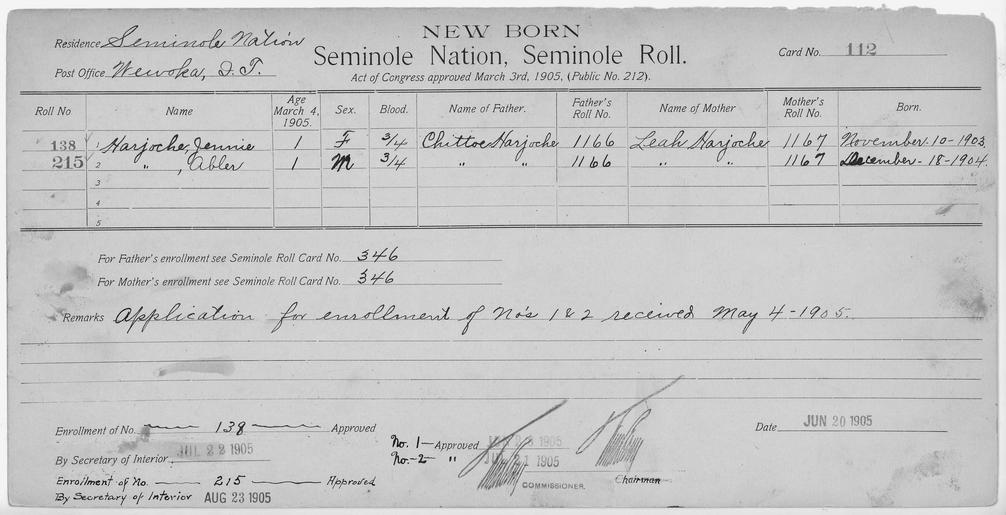 NEW BORN
Seminole Nation, Seminole Roll.
Act of Congress approved March 3rd, 1905, (Public No. 212).
Residence Seminole Nation
Post Office Wewoka, I.T.
Card No. 112
Roll No Name Age March 4, 1905. Sex. Blood. Name of Father. Father's Roll No. Name of Mother Mother's Roll No. Born.
138 1 Harjoche, Jennie 1 F 3/4 Chittoe Harjoche 1166 Leah Harjoche 1167 November 10-1903.
215 2 " , Abler 1 M 3/4 " " 1166 " " 1167 December-18-1904.
3
4
5
For Father's enrollment see Seminole Roll Card No. 346
For Mother's enrollment see Seminole Roll Card No. 346
Remarks Application for enrollment of No's 1 & 2 received May 4-1905.
Enrollment of No. 138 Approved
By Secretary of Interior JUL 22 1905
Enrollment of No. 215 Approved
By Secretary of Interior AUG 23 1905
No. 1- Approved 1905
No.-2 " 1905
COMMISSIONER.
Chairman
Date JUN 20 1905